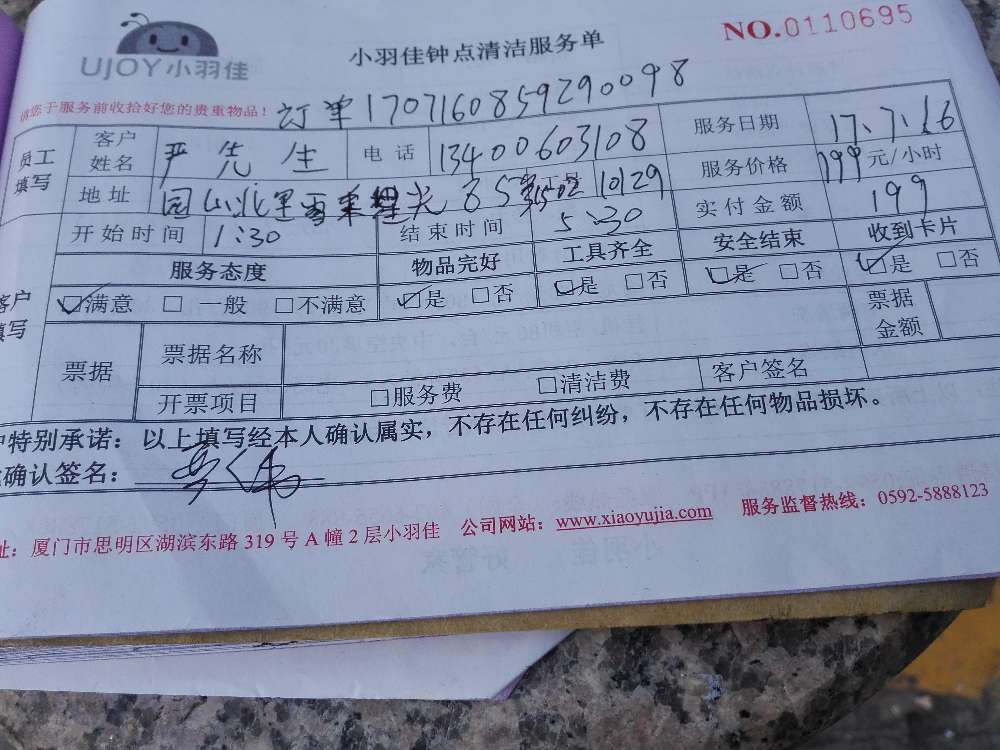 UJOY小羽佳
小羽佳钟点清洁服务单
NO.0110695
请您于服务前收拾好您的贵重物品! 订单 1707160859290098
员工填写 客户姓名 严先生 电话 13400603108 服务日期 17、7、16
地址 园山北里 65 10129 服务价格 199元/小时
开始时间 1:30 结束时间 5:30 实付金额 199
客户填写 服务态度 物品完好 工具齐全 安全结束 收到卡片
☑满意 □一般 □不满意 ☑是 □否 ☑是 □否 ☑是 □否 ☑是 □否
票据 票据名称 票据金额
开票项目 □服务费 □清洁费 客户签名
户特别承诺：以上填写经本人确认属实，不存在任何纠纷，不存在任何物品损坏。
确认签名：
址：厦门市思明区湖滨东路 319 号 A 幢 2 层小羽佳 公司网站：www.xiaoyujia.com 服务监督热线：0592-5888123